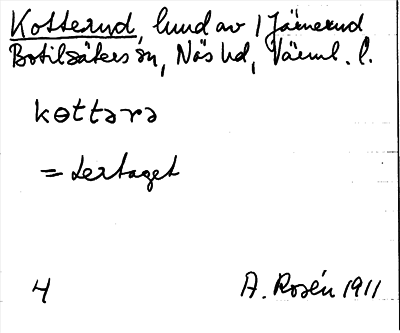 Kotterud, hund av 1 Järnerud
Botilsäkers sn, Näs hd, Värml. l.
kɵttərə
= Lertaget
4 A. Rosén 1911